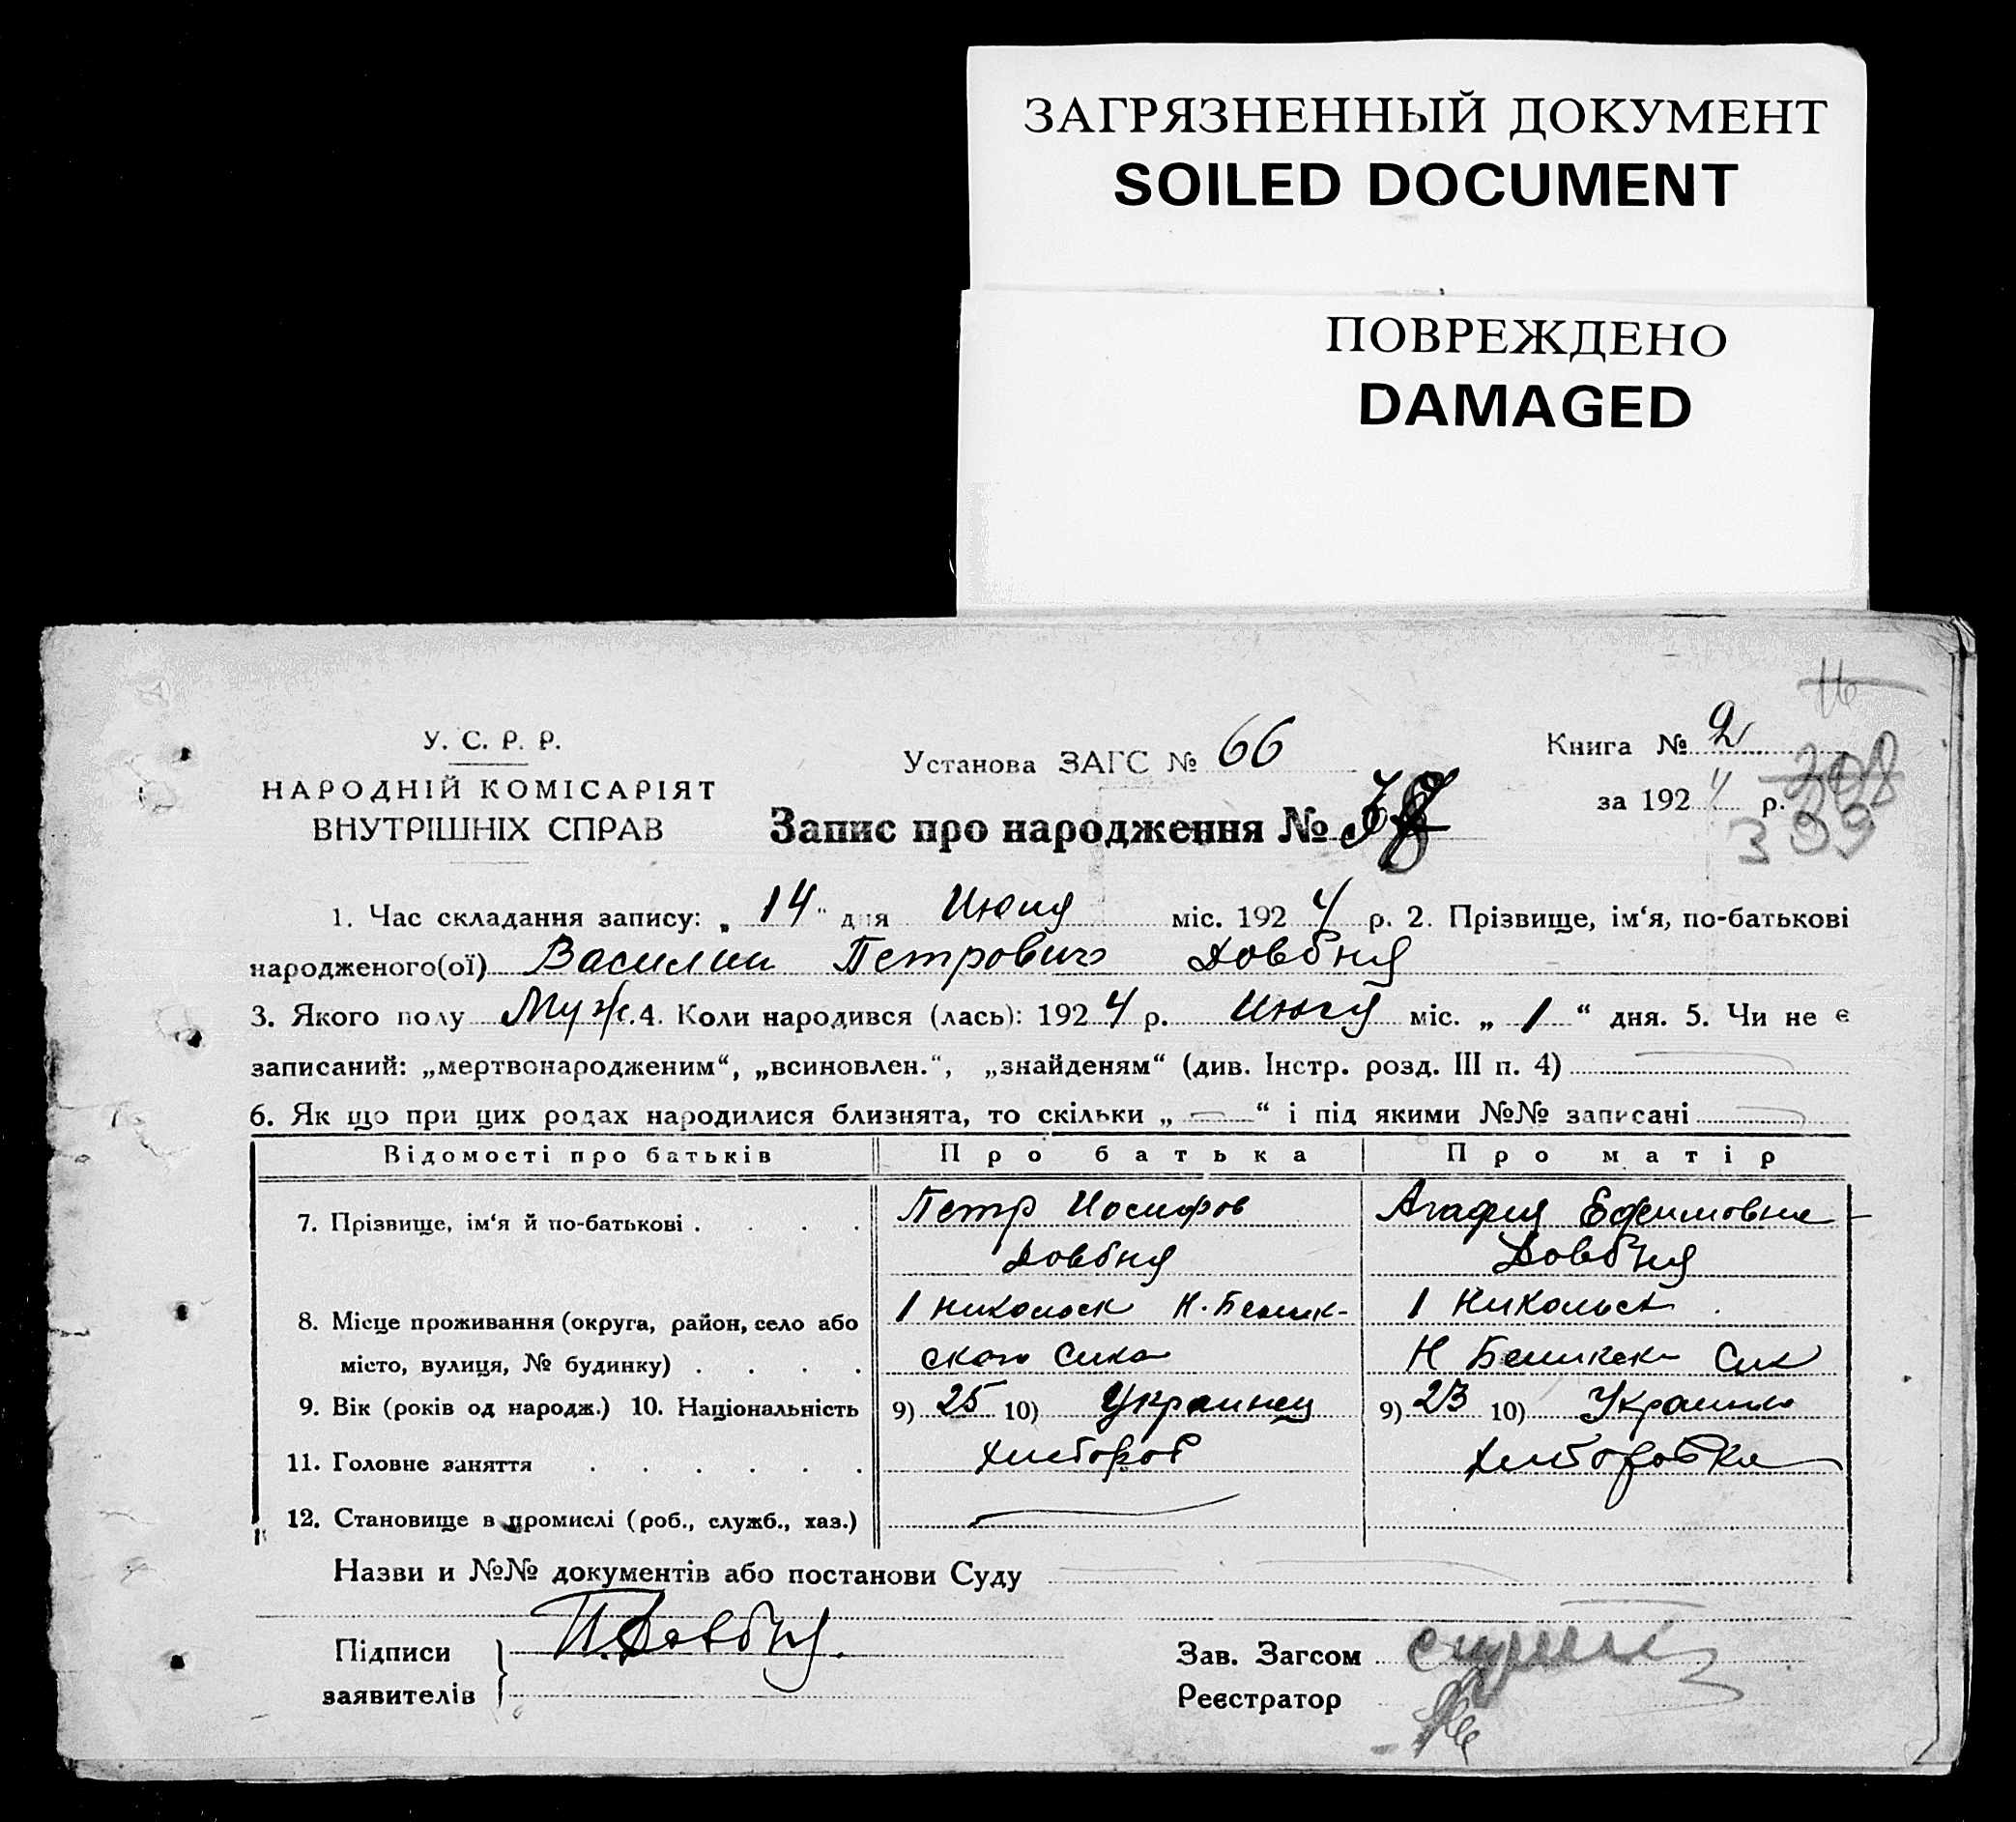 ЗАГРЯЗНЕННЫЙ ДОКУМЕНТ
SOILED DOCUMENT
ПОВРЕЖДЕНО
DAMAGED
У. С. Р. Р.
НАРОДНІЙ КОМІСАРІЯТ
ВНУТРІШНІХ СПРАВ
Установа ЗАГС № 66
Книга № 2
за 192 4 р.
399
Запис про народження №
1. Час складання запису: „ 14 " дня Июня міс. 192 4 р. 2. Прізвище, ім‘я, по-батькові
народженого(ої) Василии Петрович Довбня
3. Якого полу Муж. 4. Коли народився (лась): 192 4 р. Июня міс. „ 1 “ дня. 5. Чи не є
записаний: „мертвонародженим“, „всиновлен.“, „знайденям“ (див. Інстр. розд. III п. 4)
6. Як що при цих родах народилися близнята, то скільки „ — “ і під якими №№ записані
Відомості про батьків Про батька Про матір
7. Прізвище, ім‘я й по-батькові . . . . Петр Иосифов Агафия Ефимовна
Довбня Довбня
8. Місце проживання (округа, район, село або 1 Никольск 1 Никольск
місто, вулиця, № будинку) . . . .
9. Вік (років од народж.) 10. Національність 9) 25 10) Украинец 9) 23 10)
11. Головне заняття . . . . . . Хлебороб Хлеборобка
12. Становище в промислі (роб., служб., хаз.)
Назви и №№ документів або постанови Суду
Підписи П. Довбня.
заявителів
Зав. Загсом
Реєстратор